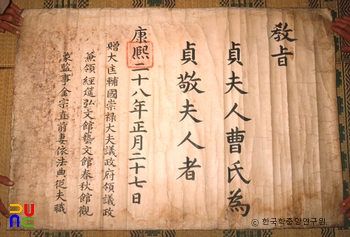 敎旨
貞夫人曹氏爲
貞敬夫人者
康熙二十八年正月二十七日
贈大匡輔國崇祿大夫議政府領議政
兼領經筵弘文館藝文館春秋館觀
象監事金宗直前妻依法典從夫職
PUNE
© 한국학중앙연구원